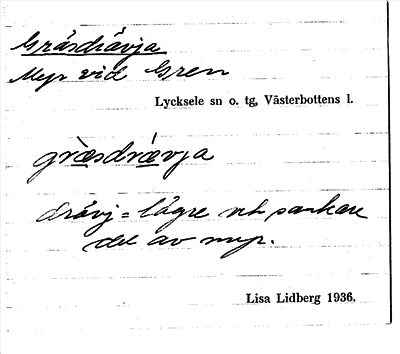 Gräsdrävja
Myr vid Gren
Lycksele sn o. tg, Västerbottens l.
græ̀sdræ̀vja
drävj = lägre och sankare
del av myr.
Lisa Lidberg 1936.